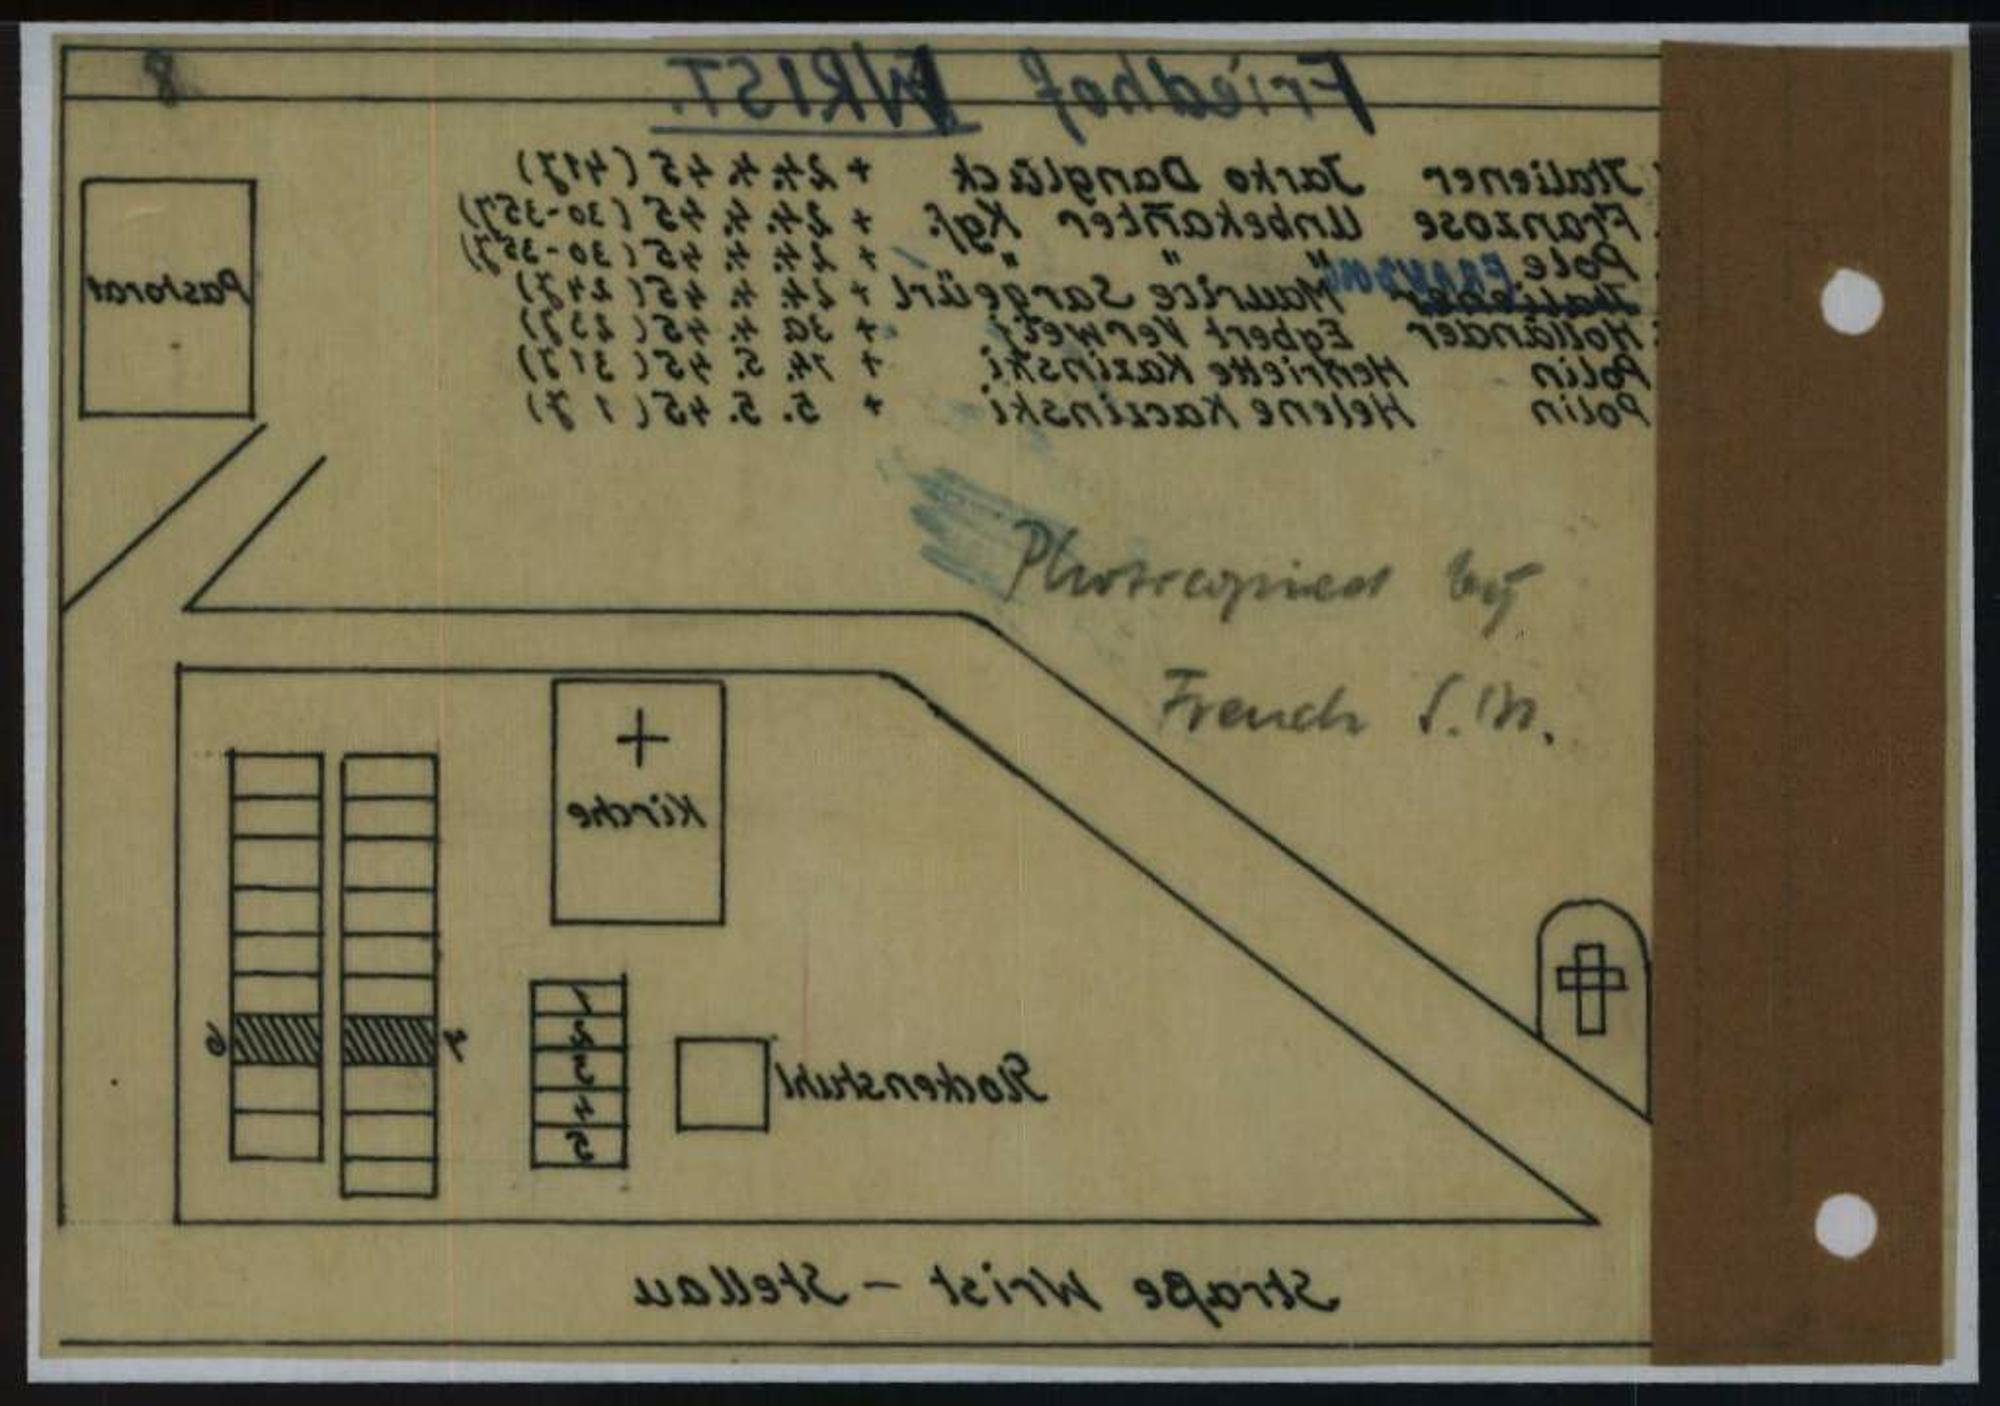 8
Friedhof WRIST.
Italiener Jarko Danglück + 24. 4. 45 (41J)
Franzose Unbekannter Kgf. + 24. 4. 45 (30-35J)
Pole " " " + 24. 4. 45 (30-35J)
Italiener FRANZOSE Maurice Sargeürl + 24. 4. 45 (24J)
Holländer Egbert Verweij + 30. 4. 45 (23J)
Polin Henriette Kazinski + 14. 5. 45 (31J)
Polin Helene Kaczinski + 5. 5. 45 (1J)
Pastorat
Photocopied by
French S.M.
Kirche
6
7
1
2
3
4
5
Glockenstuhl
Straße Wrist - Stellau